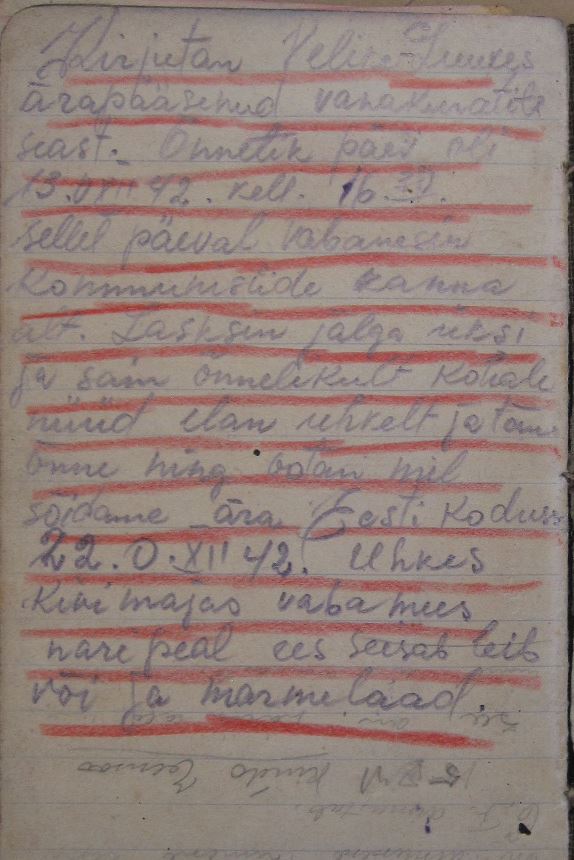 Kirjutan Velike-Luukes
ärapääsenud vanakuratite
seast. Õnnelik päev oli
13.XII 42. kell. 16.30.
sellel päeval vabanesin
Kommunistide kanna
alt. Lasksin jalga üksi
ja sain õnnelikult Kohale
nüüd elan uhkelt ja tänu
õnne ning ootan mil
sõidame ära Eesti Koduss
22.0.XII 42. Uhkes
Kivimajas vaba mees
nari peal ees seisab leib
või ja marmelaad.